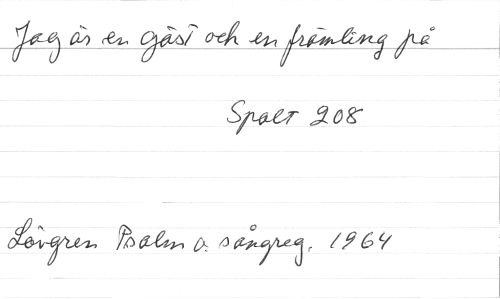 Jag är en gäst och en främling på
Spalt 208
Lövgren Psalm o. sångreg. 1964